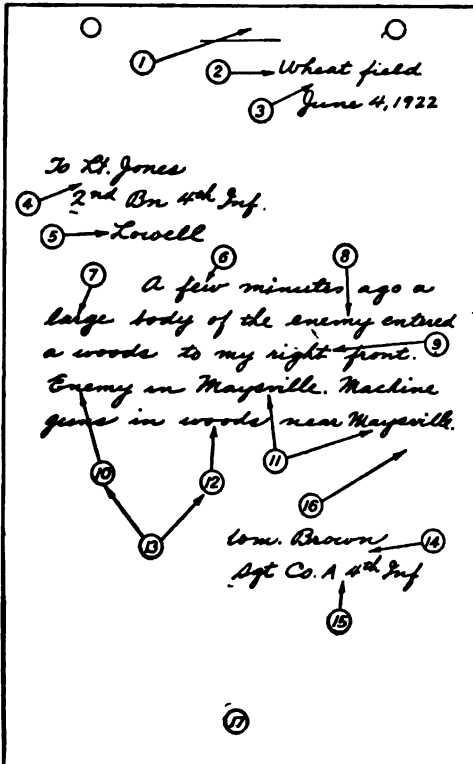 1
2 Wheat field
3 June 4, 1922
To Lt. Jones
4 2nd Bn 4th Inf.
5 Lowell
7 6 8
A few minutes ago a
large body of the enemy entered
a woods to my right front. 9
Enemy in Maysville. Machine
guns in woods near Maysville.
10 12 11
16
13 Wm. Brown 14
Sgt Co. A 4th Inf
15
17